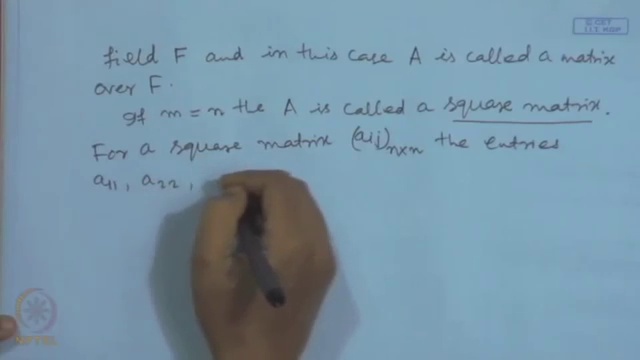 © CET
I.I.T. KGP
field F and in this case A is called a matrix
over F.
If m = n the A is called a square matrix.
For a square matrix (aij)n×n the entries
a11, a22,
NPTEL